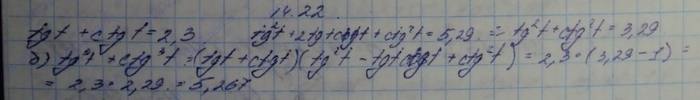 14.22.
tgt + ctgt = 2,3 tg²t + 2tgt·ctgt + ctg²t = 5,29 => tg²t + ctg²t = 3,29
б) tg³t + ctg³t = (tgt + ctgt)(tg²t - tgtctgt + ctg²t) = 2,3 · (3,29 - 1) =
= 2,3 · 2,29 = 5,267